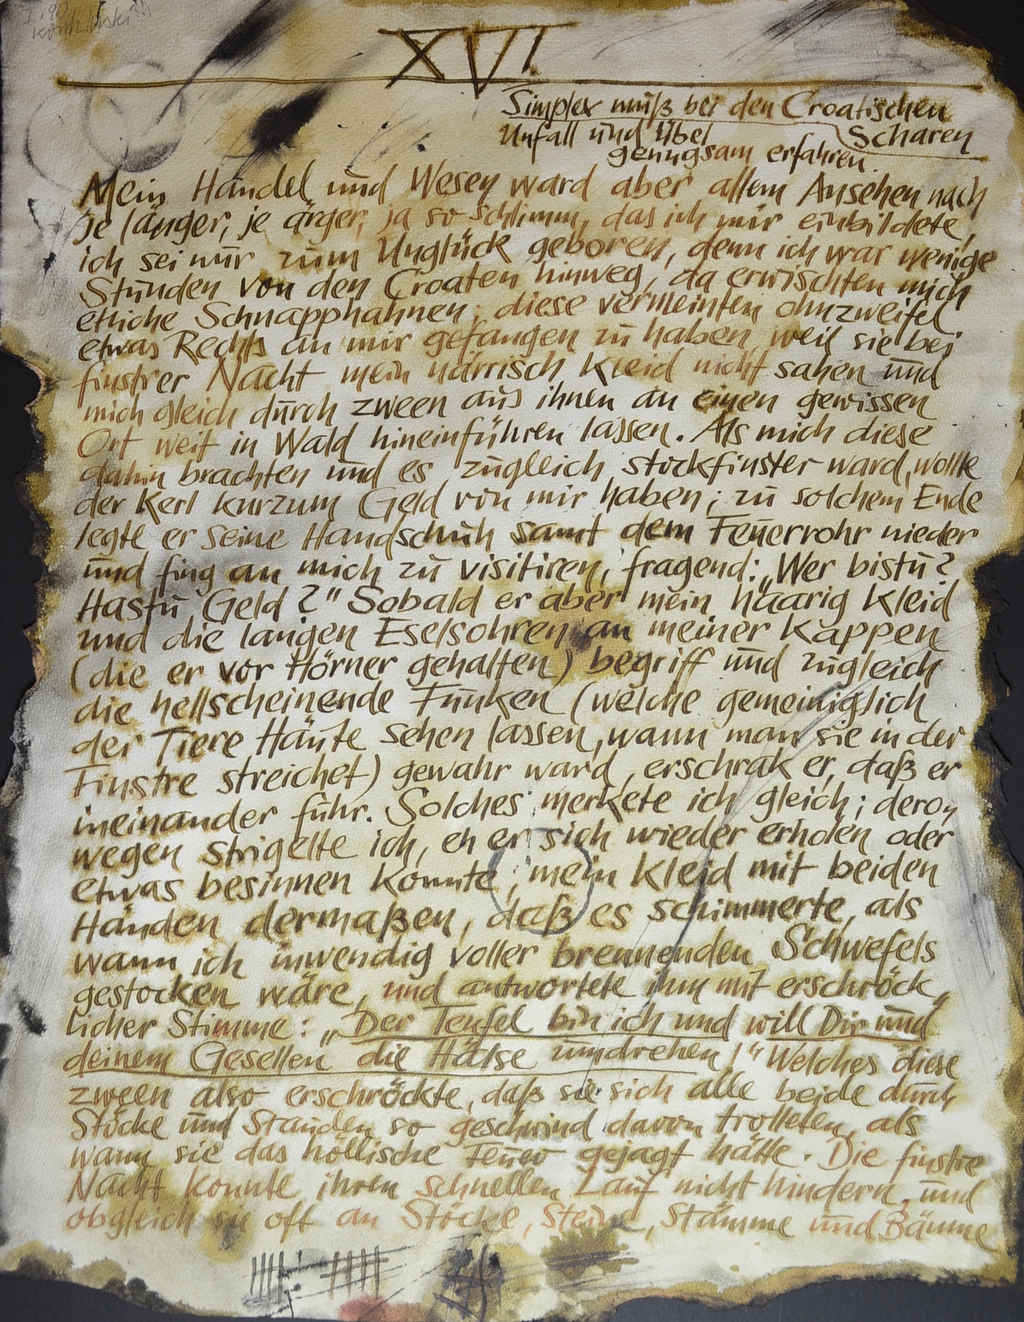 XVI
Simplex muß bei den Croatischen
Unfall und Übel Scharen
genugsam erfahren.
Mein Handel und Wesen ward aber allem Ansehen nach
je länger, je ärger, ja so schlimm, das ich mir einbildete,
ich sei nur zum Unglück geboren, denn ich war wenige
Stunden von den Croaten hinweg, da erwischten mich
etliche Schnapphahnen; diese vermeinten ohnzweifel
etwas Rechts an mir gefangen zu haben, weil sie bei
finstrer Nacht mein närrisch Kleid nicht sahen und
mich gleich durch zween aus ihnen an einen gewissen
Ort weit in Wald hineinführen lassen. Als mich diese
dahin brachten und es zugleich stockfinster ward, wollte
der Kerl kurzum Geld von mir haben; zu solchem Ende
legte er seine Handschuh samt dem Feuerrohr nieder
und fing an mich zu visitiren, fragend: „Wer bistu?
Hastu Geld?" Sobald er aber mein haarig Kleid
und die langen Eselsohren an meiner Kappen
(die er vor Hörner gehalten) begriff und zugleich
die hellscheinende Funken (welche gemeiniglich
der Tiere Häute sehen lassen, wann man sie in der
Finstre streichet) gewahr ward, erschrak er, daß er
ineinander fuhr. Solches merkete ich gleich; dero-
wegen strigelte ich, eh er sich wieder erholen oder
etwas besinnen konnte, mein Kleid mit beiden
Händen dermaßen, daß es schimmerte, als
wann ich inwendig voller brennenden Schwefels
gestocken wäre, und antwortete ihm mit erschröck„
licher Stimme: „Der Teufel bin ich und will Dir und
deinem Gesellen die Hälse umdrehen!" Welches diese
zween also erschröckte, daß sie sich alle beide durch
Stöcke und Stauden so geschwind davon trolleten, als
wann sie das höllische Feuer gejagt hätte. Die finstre
Nacht konnte ihren schnellen Lauf nicht hindern, und
obgleich sie oft an Stöcke, Steine, Stämme und Bäume